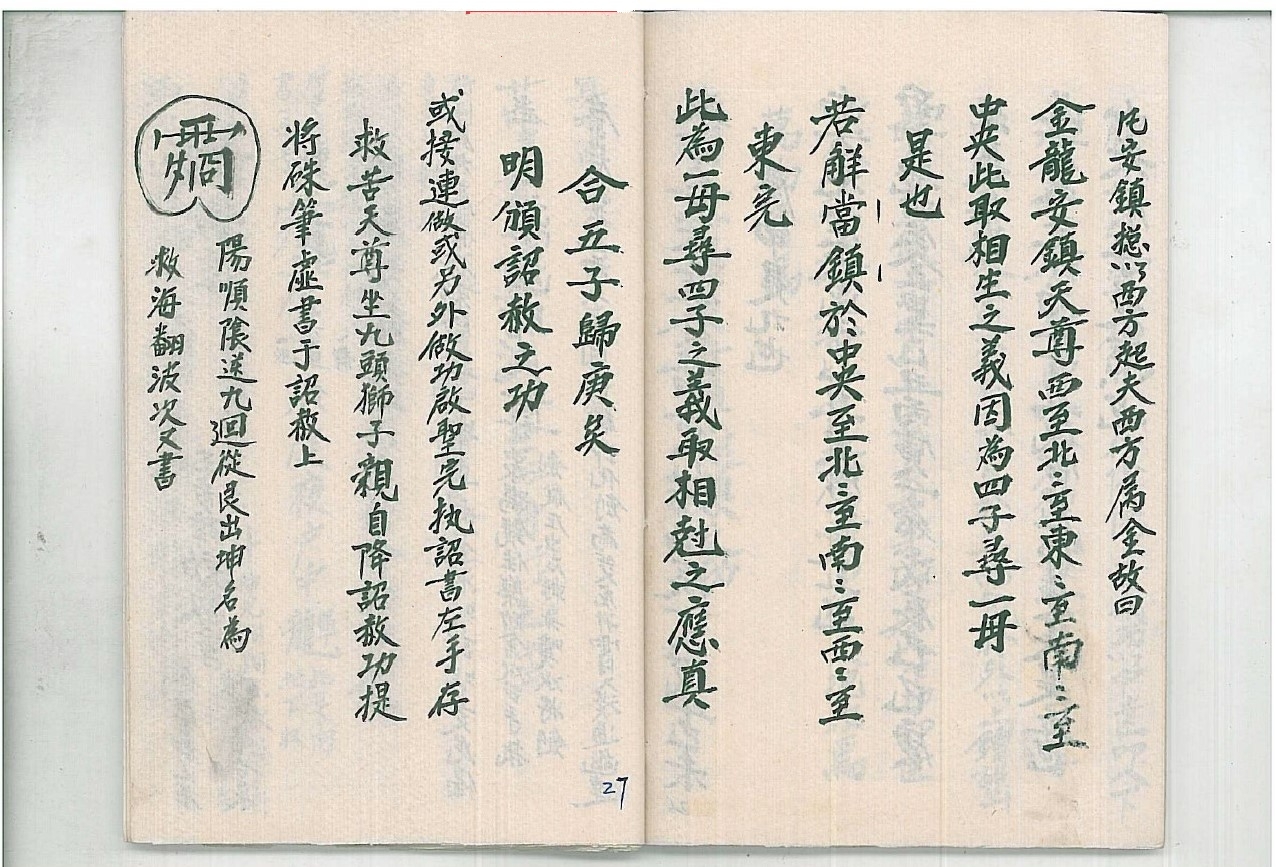 凡安鎮揔以西方起夫西方属金故曰
金龍安鎮天尊西至北〻至東〻至南〻至
中央此取相生之義因為四子尋一母
是也
若解當鎮於中央至北〻至南〻至西〻至
東完
此為一母尋四子之義取相尅之應真
合五子歸庚矣
明頒詔赦之功
或接連做或另外做功啟聖完执詔書左手存
救苦天尊坐九頭獅子親自降詔赦功提
将硃筆虛書于詔赦上
陽順陰逆九迴從艮出坤名為
救海翻波次又書
27